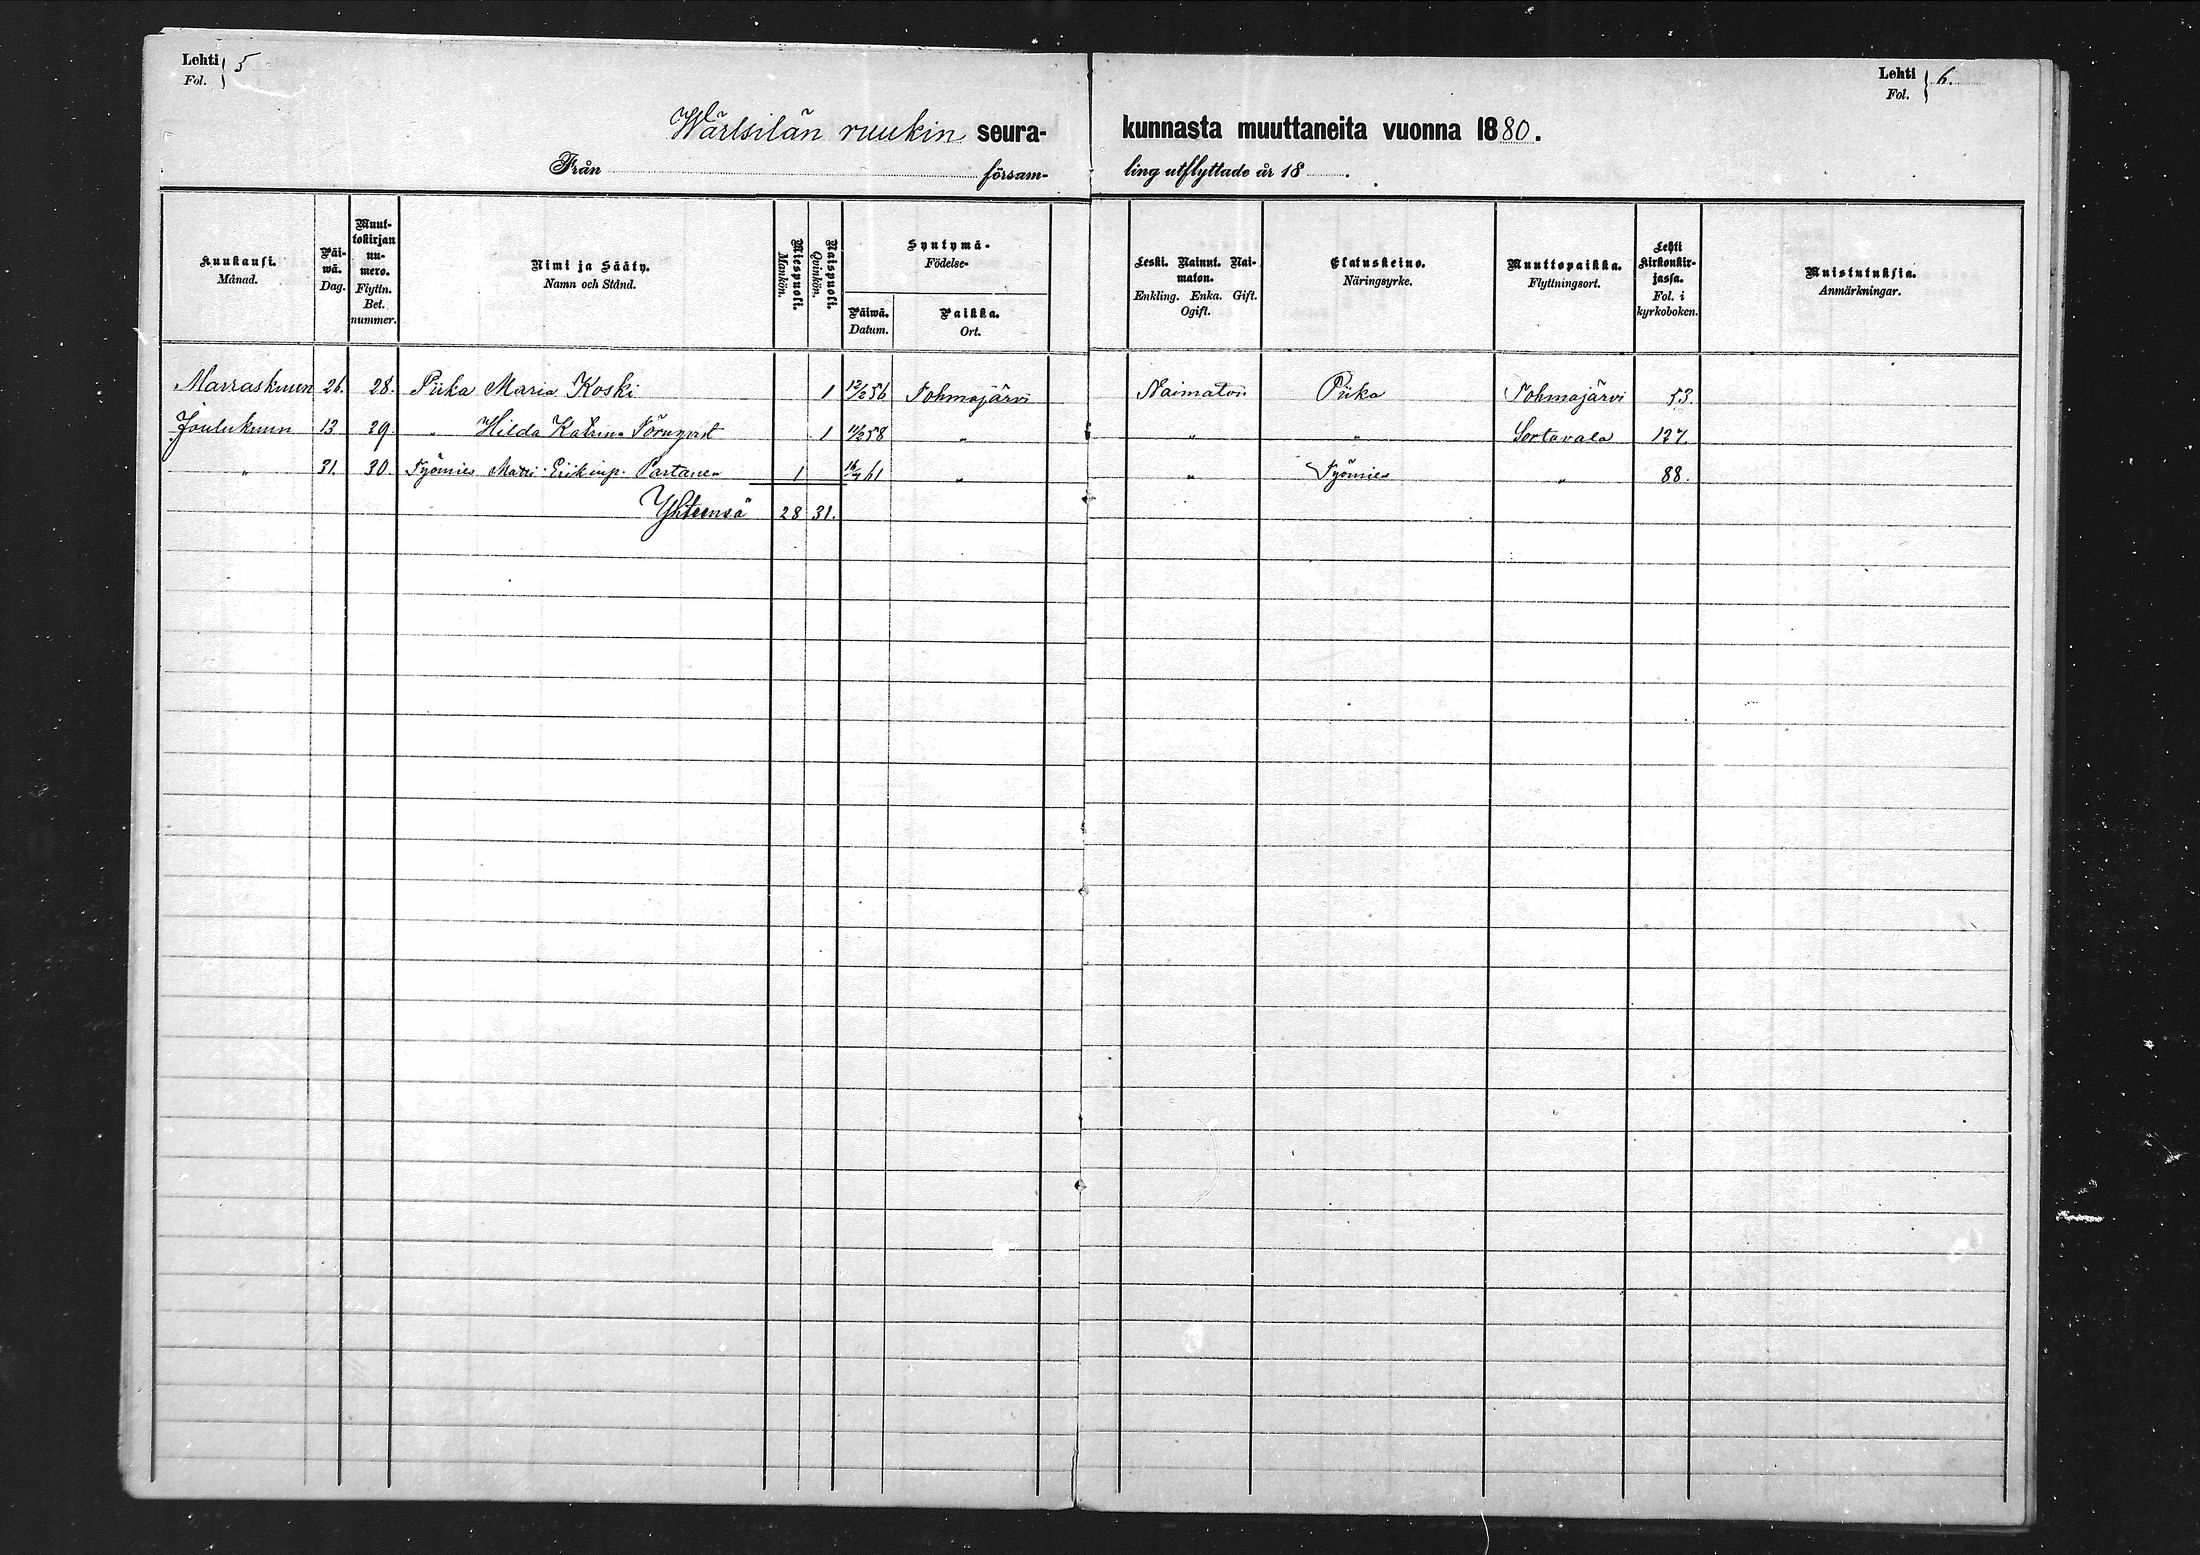 Lehti 5
Fol.
Wärtsilän ruukin seura-
Från försam-
Kuukausi.
Månad.
Päi-
wä.
Dag.
Muut-
tokirjan
nu-
mero.
Flyttn.
Bet.
nummer.
Nimi ja Sääty.
Namn och Stånd.
Miespuoli.
Mankön.
Naispuoli.
Qvinkön.
Syntymä-
Födelse-
Päiwä.
Datum.
Paikka.
Ort.
Marraskuun 26. 28. Piika Maria Koski 1 12/2 56 Tohmajärvi
Joulukuun 13. 29. „ Hilda Katrina Törnqvist 1 11/2 58 „
„ 31. 30. Työmies Matti Erikinp. Partanen 1 16/4 61 „
Yhteensä 28 31.
Lehti 6.
Fol.
kunnasta muuttaneita vuonna 1880.
ling utflyttade år 18 .
Leski. Nainut. Nai-
maton.
Enkling. Enka. Gift.
Ogift.
Elatuskeino.
Näringsyrke.
Muuttopaikka.
Flyttningsort.
Lehti
kirkonkir-
jassa.
Fol. i
kyrkoboken.
Muistutuksia.
Anmärkningar.
Naimaton Piika Tohmajärvi 53.
„ „ Sortavala 127.
„ Työmies „ 88.